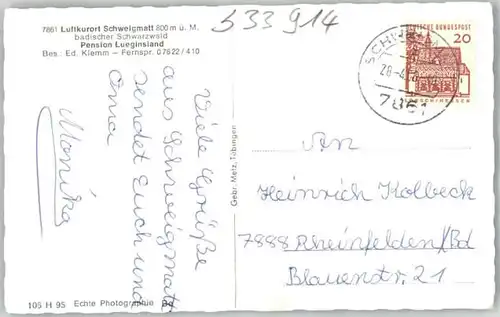 7861 Luftkurort Schweigmatt 800 m ü. M.
badischer Schwarzwald
Pension Lueginsland
Bes.: Ed. Klemm - Fernspr. 07622/410
533 914
DEUTSCHE BUNDESPOST
20
7861
Viele Grüße
aus Schweigmatt
sendet Euch und
Oma
Monika
Gebr. Metz, Tübingen
An
Heinrich Kolbeck
7888 Rheinfelden/Bd
Blauenstr. 21
106 H 95 Echte Photographie